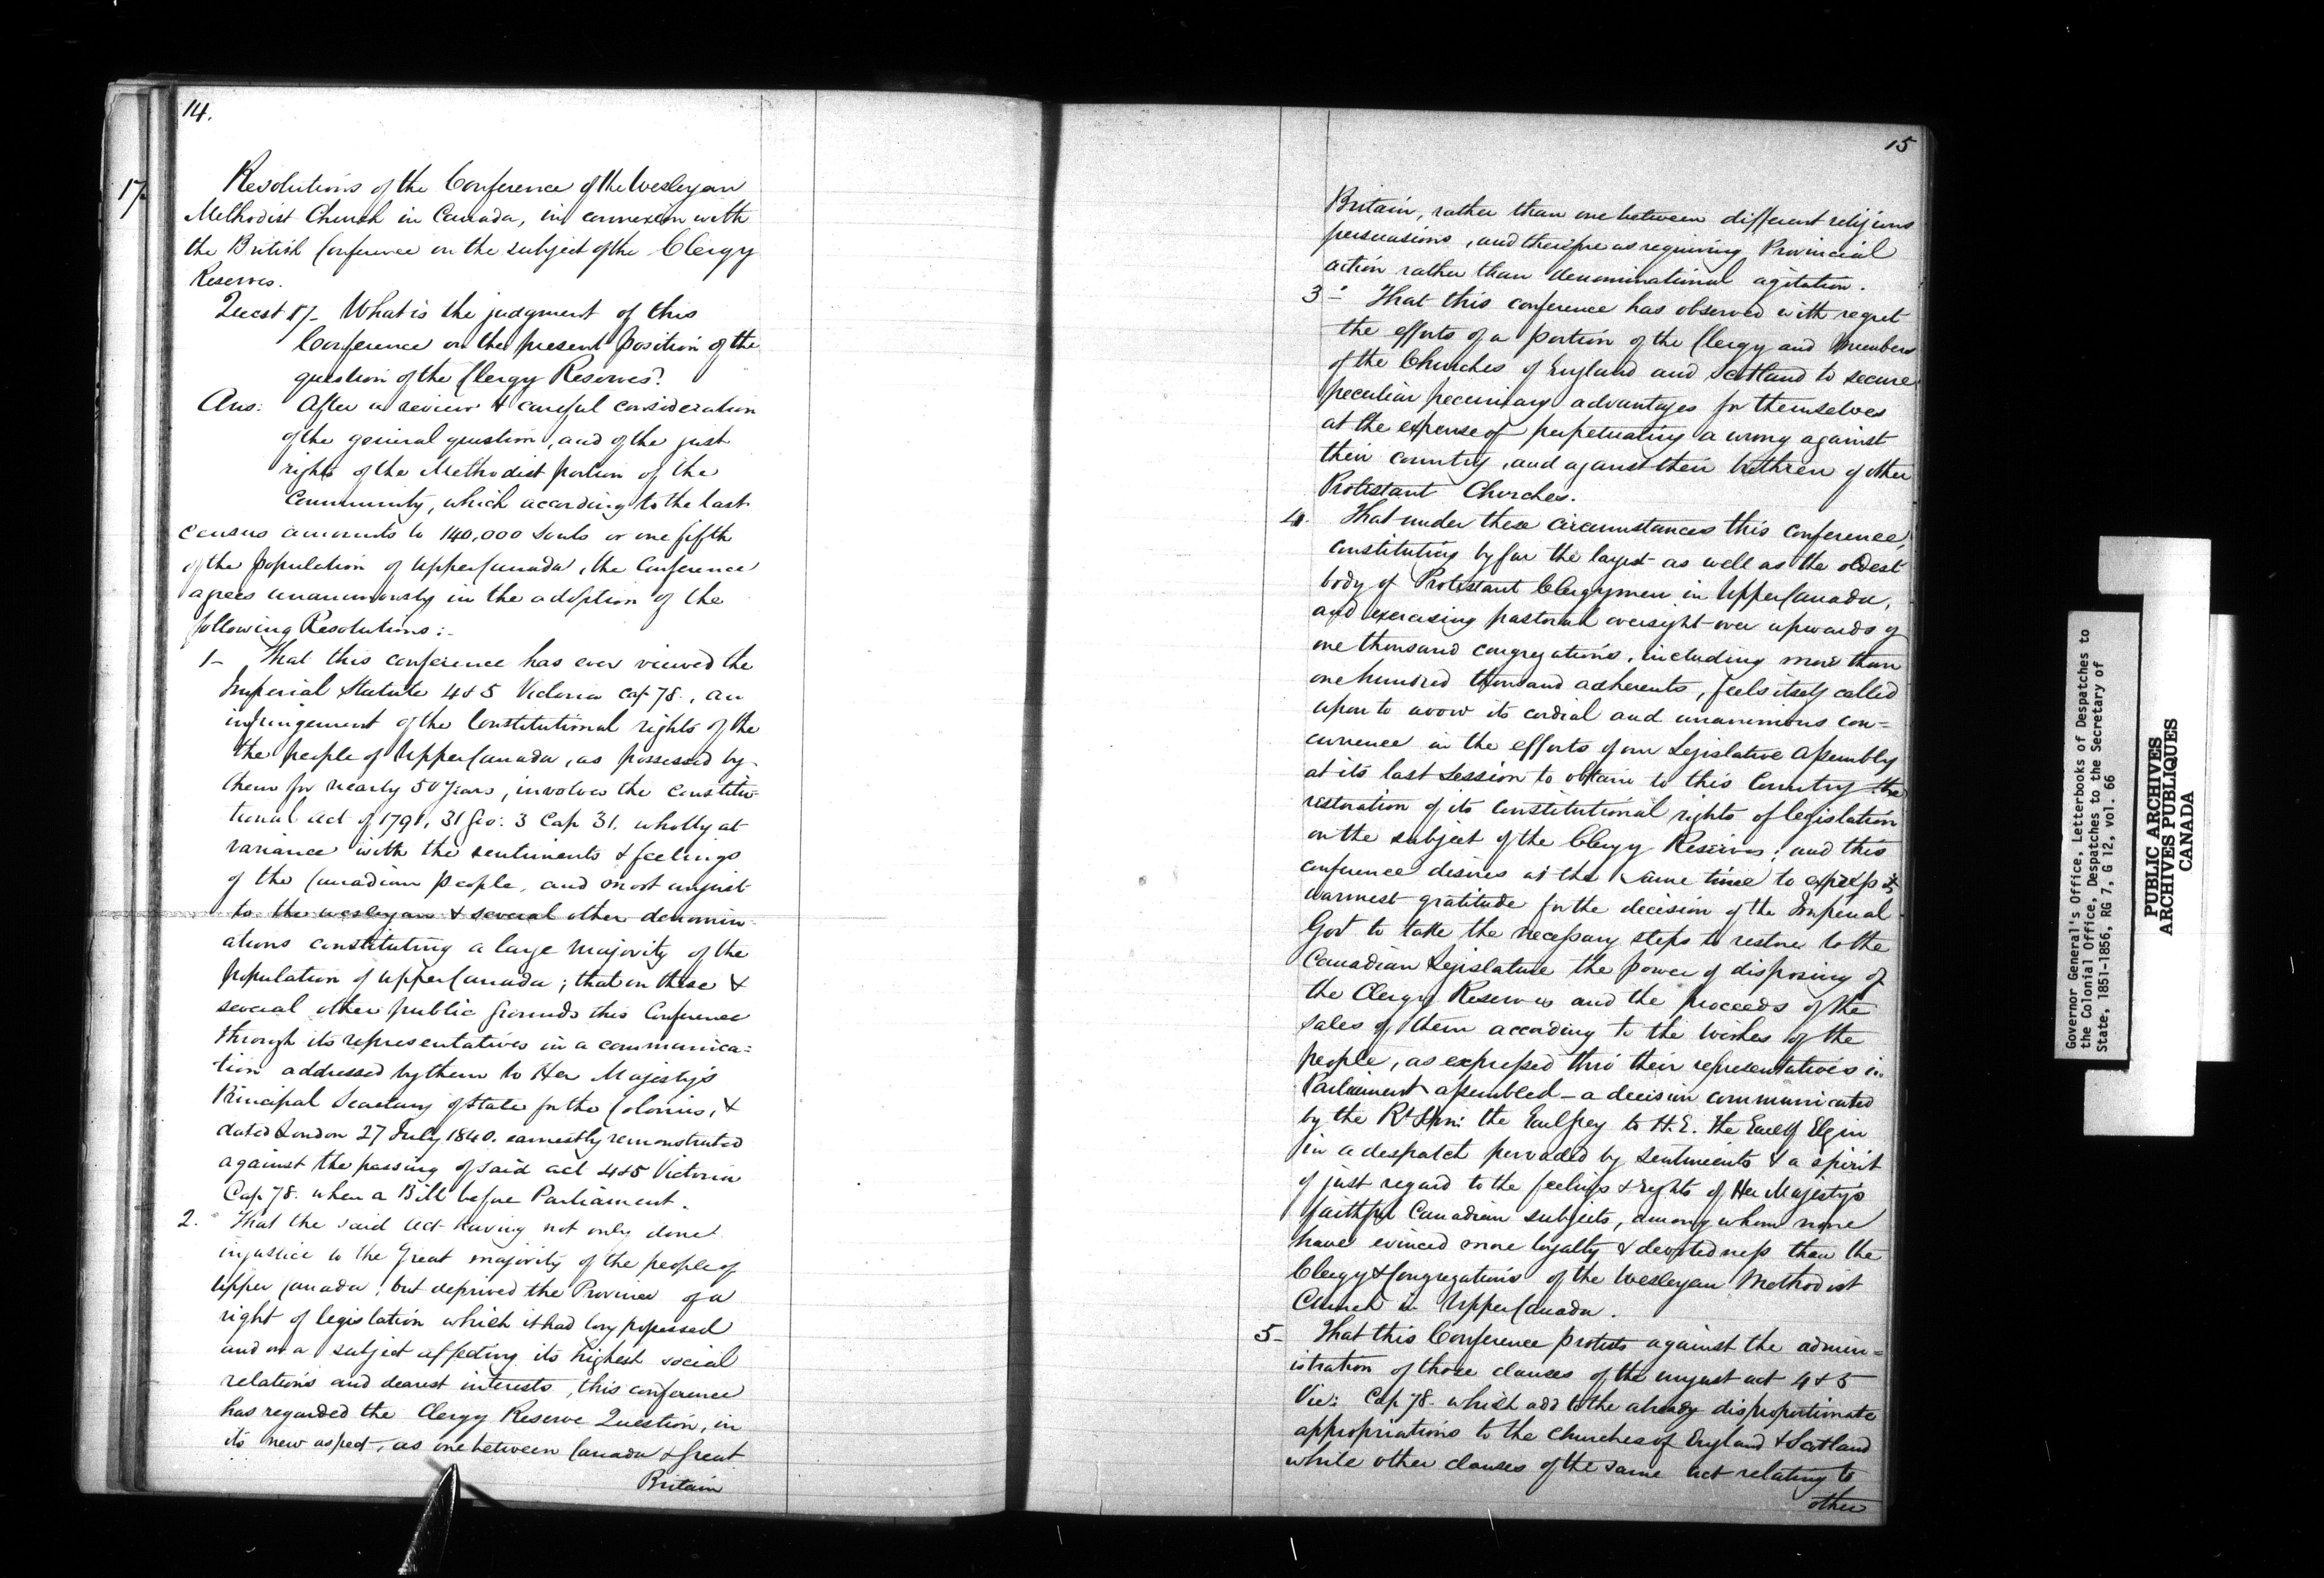 14.
17.
Resolutions of the Conference of the Wesleyan
Methodist Church in Canada, in connexion with
the British Conference on the subject of the Clergy
Reserves.
Quest 17- What is the judgment of this
Conference on the present position of the
question of the Clergy Reserves?
Ans: After a review & careful consideration
of the general question, and of the just
rights of the Methodist portion of the
Community, which according to the last
census amounts to 140,000 Souls or one fifth
of the population of Upper Canada, the Conference
agrees unanimously in the adoption of the
following Resolutions:-
1- That this conference has ever viewed the
Imperial Statute 4&5 Victoria Cap 78., an
infringement of the Constitutional rights of the
the people of Upper Canada, as possessed by
them for nearly 50 Years, involves the Constitu-
tional Act of 1791, 31 Geo: 3 Cap 31. wholly at
variance with the sentiments & feelings
of the Canadian people, and most unjust
to the wesleyan & several other denomin-
ations constituting a large majority of the
population of Upper Canada; that on these &
several other public grounds this Conference
through its representatives in a communica=
tion addressed by them to Her Majesty's
Principal Secretary of State for the Colonies, &
dated London 27 July 1840. earnestly remonstrated
against the passing of said act 4&5 Victoria
Cap 78. when a Bill before Parliament.
2. That the said Act having not only done
injustice to the Great majority of the people of
Upper Canada, but deprived the Province of a
right of legislation which it had long possessed
and on a subject affecting its highest social
relations and dearest interests, this conference
has regarded the Clergy Reserve Question, in
its new aspect, as one between Canada & Great
Britain
15
Britain, rather than one between different religious
persuasions, and therefore as requiring Provincial
action rather than denominational agitation.
3- That this conference has observed with regret
the efforts of a portion of the Clergy and Members
of the Churches of England and Scotland to secure
peculiar pecuniary advantages for themselves
at the expense of perpetuating a wrong against
their country, and against their brethren of other
Protestant Churches.
4. That under these circumstances this conference,
constituting by far the largest as well as the oldest
body of Protestant Clergymen in Upper Canada,
and exercising pastoral oversight over upwards of
one thousand congregations, including more than
one hundred thousand adherents, feels itself called
upon to avow its cordial and unanimous con=
currence in the efforts of our Legislative Assembly
at its last Session to obtain to this Country the
restoration of its Constitutional rights of legislation
on the subject of the Clergy Reserves; and this
conference desires at the same time to express its
warmest gratitude for the decision of the Imperial
Govt to take the necessary steps to restore to the
Canadian Legislature the power of disposing of
the Clergy Reserves and the proceeds of the
sales of them according to the wishes of the
people, as expressed thro' their representatives in
Parliament assembled - a decision communicated
by the Rt Hon: the Earl Grey to H.E. the Earl of Elgin
in a despatch pervaded by sentiments & a spirit
of just regard to the feelings & rights of Her Majesty's
faithful Canadian subjects, among whom none
have evinced more loyalty & devotedness than the
Clergy & Congregations of the Wesleyan Methodist
Church in Upper Canada.
5- That this Conference protests against the admin=
istration of those clauses of the unjust act 4&5
Vic: Cap 78. which add to the already disproportionate
appropriations to the Churches of England & Scotland
while other clauses of the same Act relating to
other
Governor General's Office, Letterbooks of Despatches to
the Colonial Office, Despatches to the Secretary of
State, 1851-1856, RG 7, G 12, vol. 66
PUBLIC ARCHIVES
ARCHIVES PUBLIQUES
CANADA